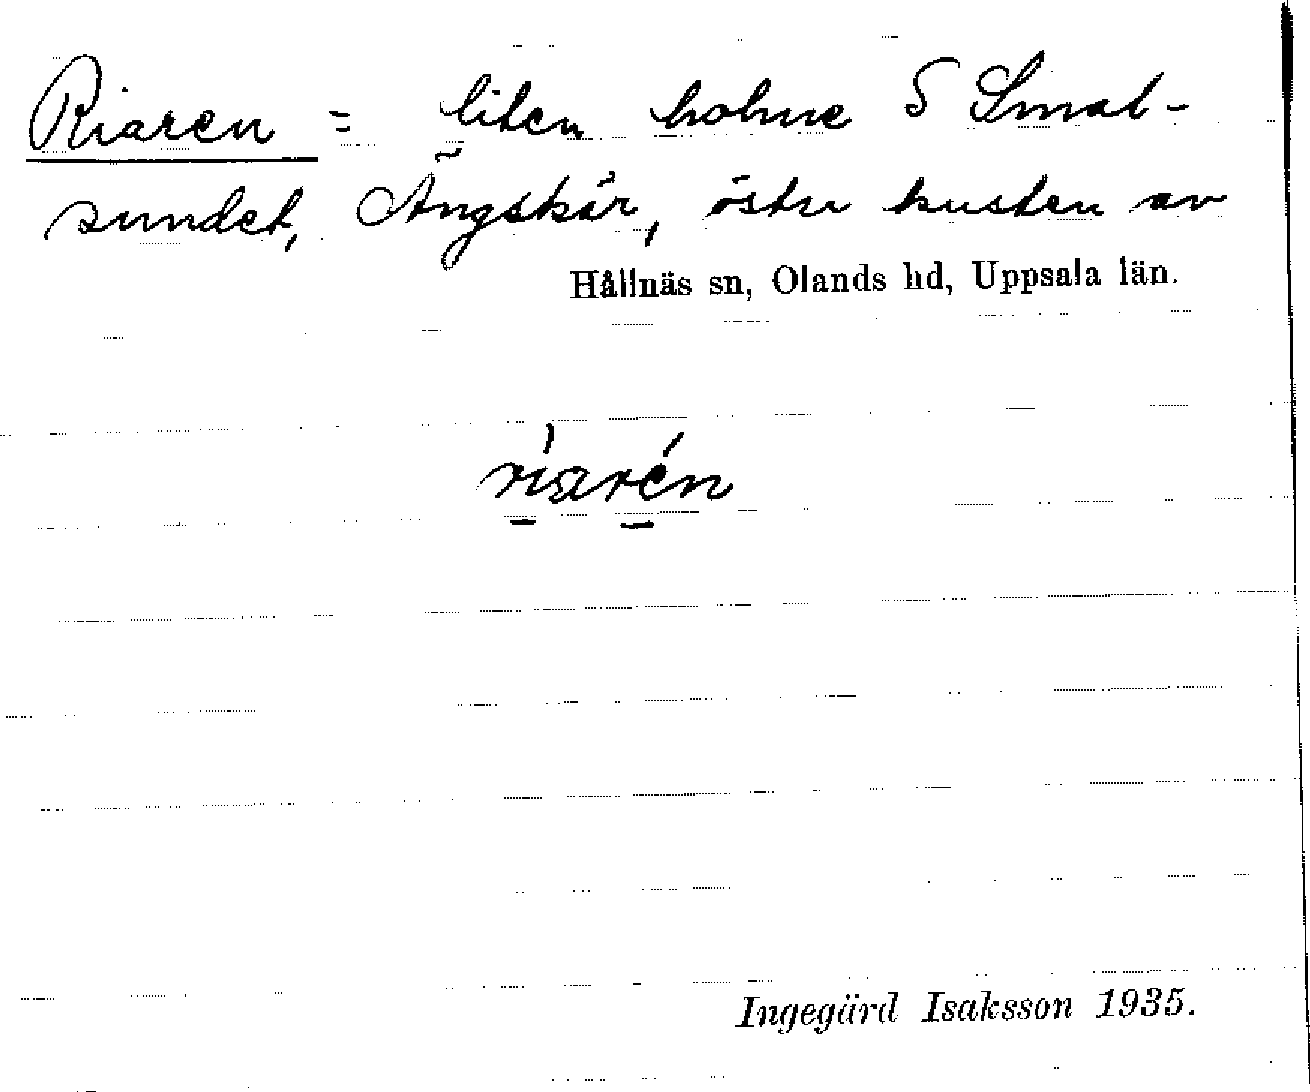 Riaren = liten holme S Smal-
sundet, Ängskär, östra kusten av
Hållnäs sn, Olands hd, Uppsala län.
rìarén
Ingegärd Isaksson 1935.